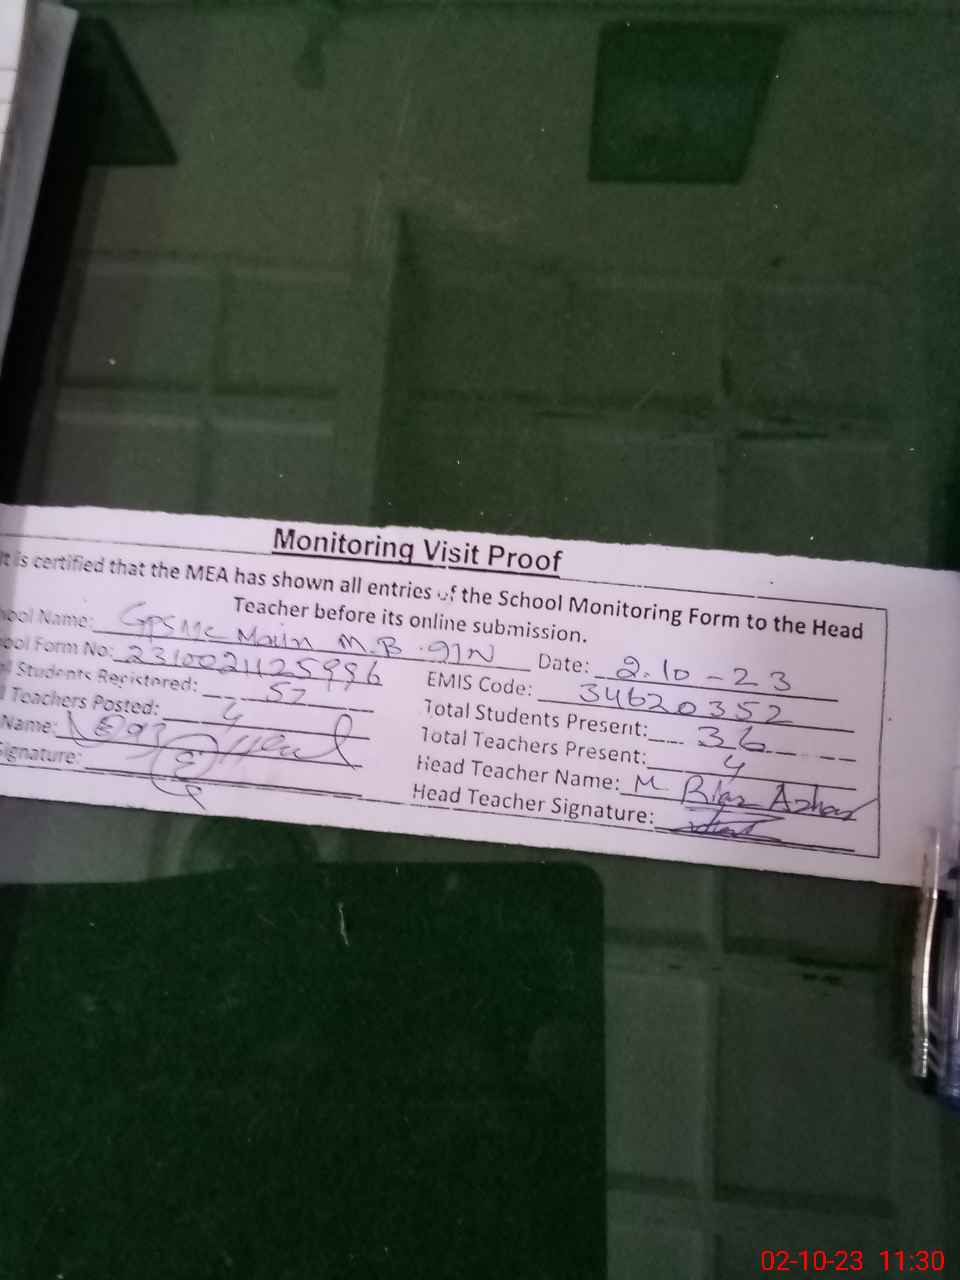 Monitoring Visit Proof
It is certified that the MEA has shown all entries of the School Monitoring Form to the Head
Teacher before its online submission.
hool Name: GPS MC Main M.B. 91N Date: 2.10-23
ool Form No: 2310021125996 EMIS Code: 34620352
l Students Registered: 57 Total Students Present: 36
l Teachers Posted: 4 Total Teachers Present: 4
Name: Head Teacher Name: M. Azhar
Signature: Head Teacher Signature:
02-10-23 11:30